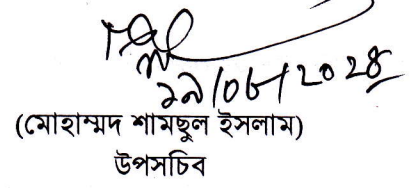 ২৯/০৮/২০২৪
(মোহাম্মদ শামছুল ইসলাম)
উপসচিব